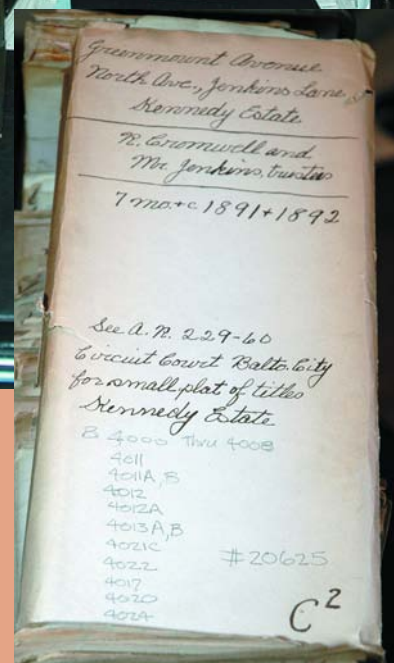 Greenmount Avenue
North Ave., Jenkins Lane
Kennedy Estate
R. Cromwell and
Mr. Jenkins, trustees
7 mo. + c 1891 + 1892
See A. R. 229-60
Circuit Court Balto. City
for small plat of titles
Kennedy Estate
B 4000 thru 4008
4011
4011A, B
4012
4012A
4013A, B
4021C
4022 #20625
4017
4020
4024
C2